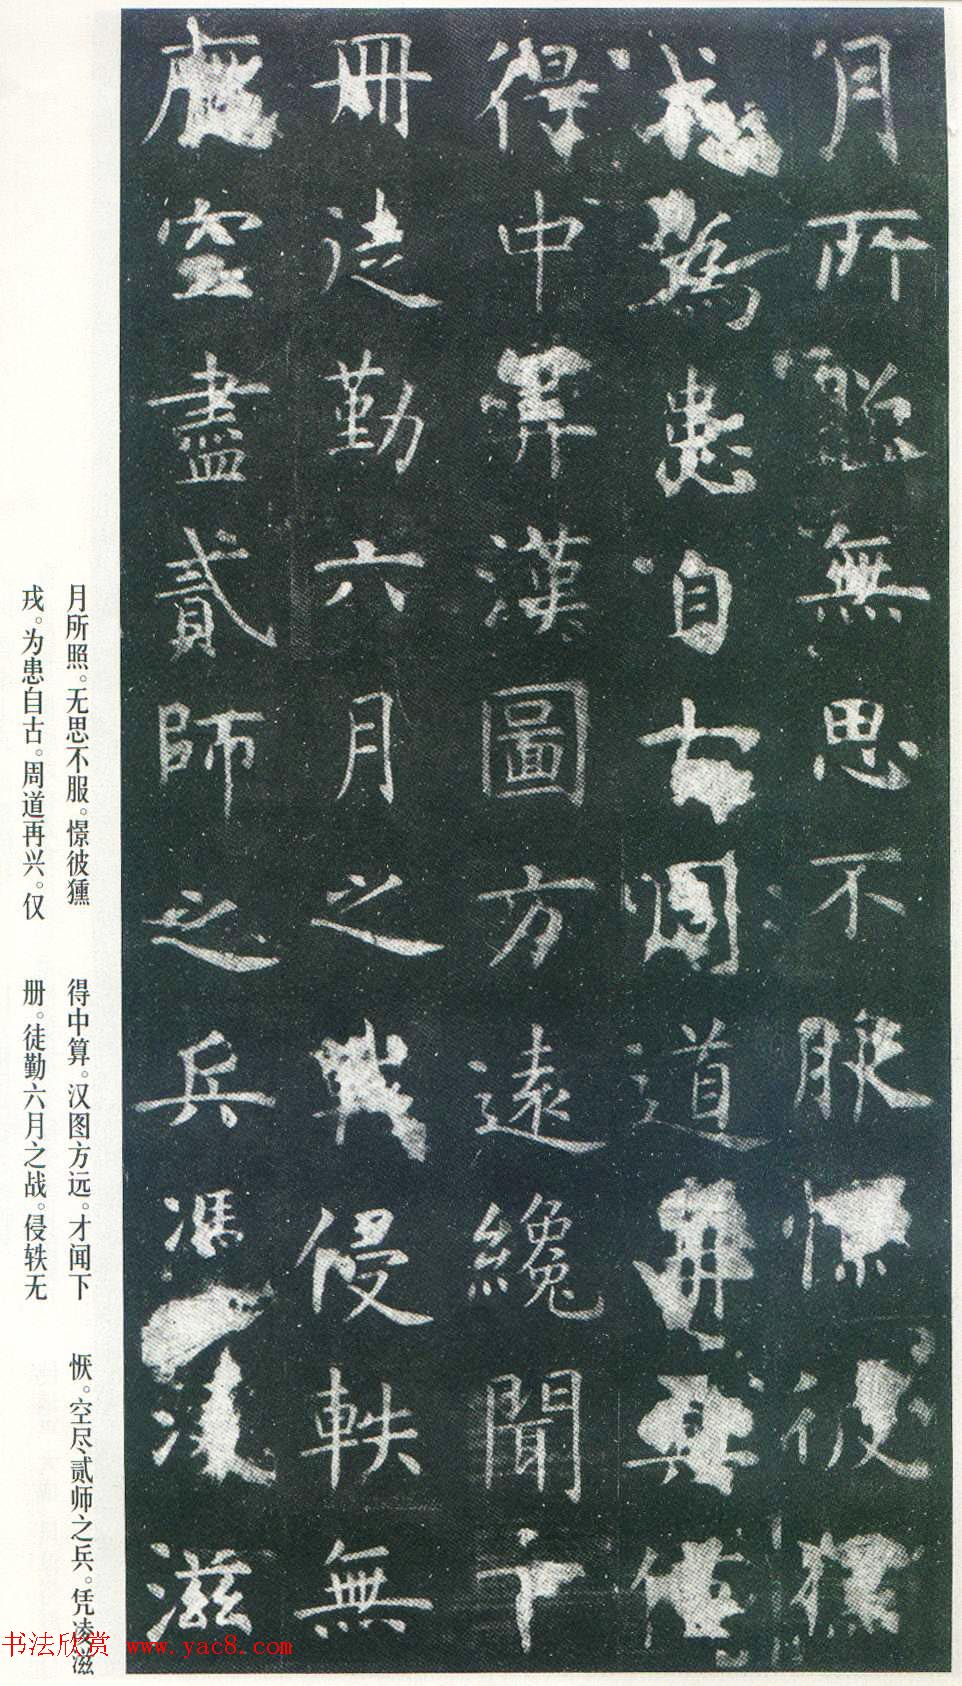 月所照無思不服憬彼獯
戎為患自古周道再興僅
得中算漢圖方遠纔聞下
冊徒勤六月之戰侵軼無
空盡貳師之兵馮凌滋
月所照。无思不服。憬彼獯
戎。为患自古。周道再兴。仅
得中算。汉图方远。才闻下
册。徒勤六月之战。侵轶无
恹。空尽贰师之兵。凭凌滋
书法欣赏 www.yac8.com